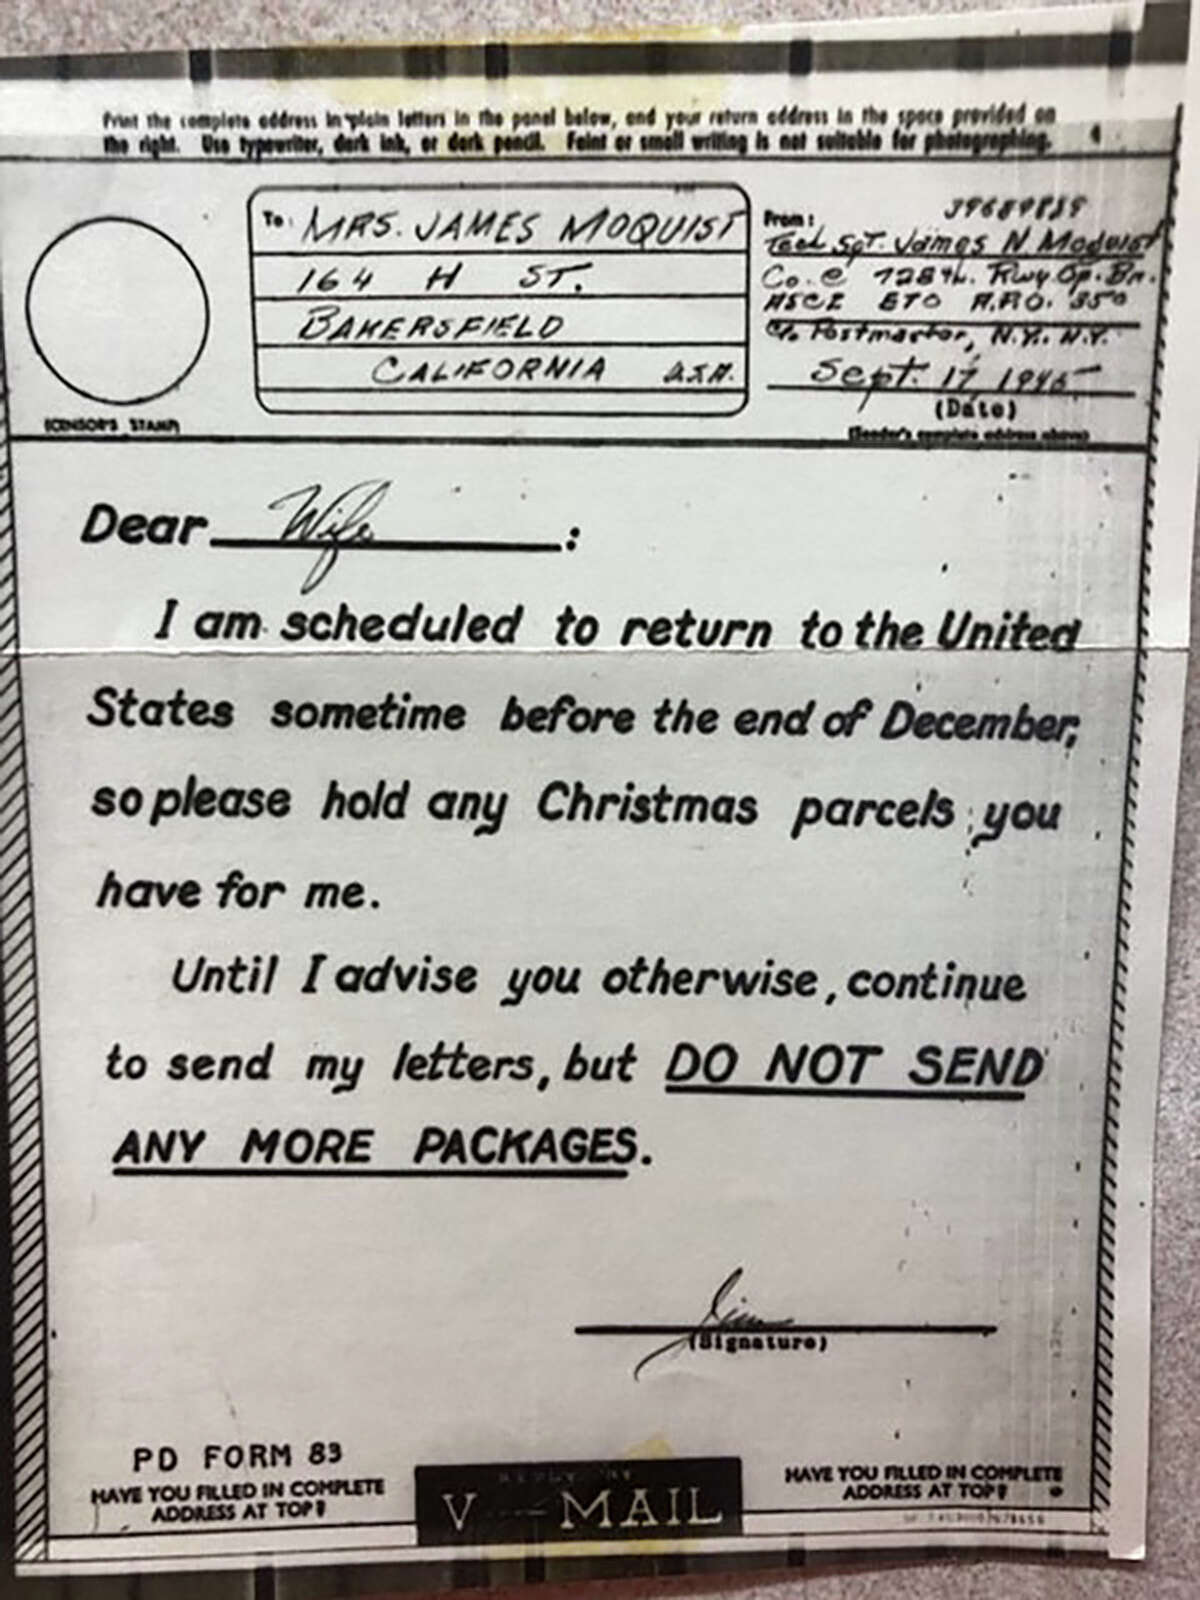 Print the complete address in plain letters in the panel below, and your return address in the space provided on
the right. Use typewriter, dark ink, or dark pencil. Faint or small writing is not suitable for photographing.
(CENSOR'S STAMP)
To: MRS. JAMES MOQUIST
164 H ST.
BAKERSFIELD
CALIFORNIA U.S.A.
From:
Tech Sgt. James N Moquist
Co. C 728th. Rwy. Op. Bn.
ETO A.P.O. 350
c/o Postmaster, N.Y., N.Y.
Sept. 17 1945
(Date)
(Sender's complete address above)
Dear Wife :
I am scheduled to return to the United
States sometime before the end of December,
so please hold any Christmas parcels you
have for me.
Until I advise you otherwise, continue
to send my letters, but DO NOT SEND
ANY MORE PACKAGES.
Jim
(Signature)
PD FORM 83
HAVE YOU FILLED IN COMPLETE
ADDRESS AT TOP?
REPLY BY
V-MAIL
HAVE YOU FILLED IN COMPLETE
ADDRESS AT TOP?